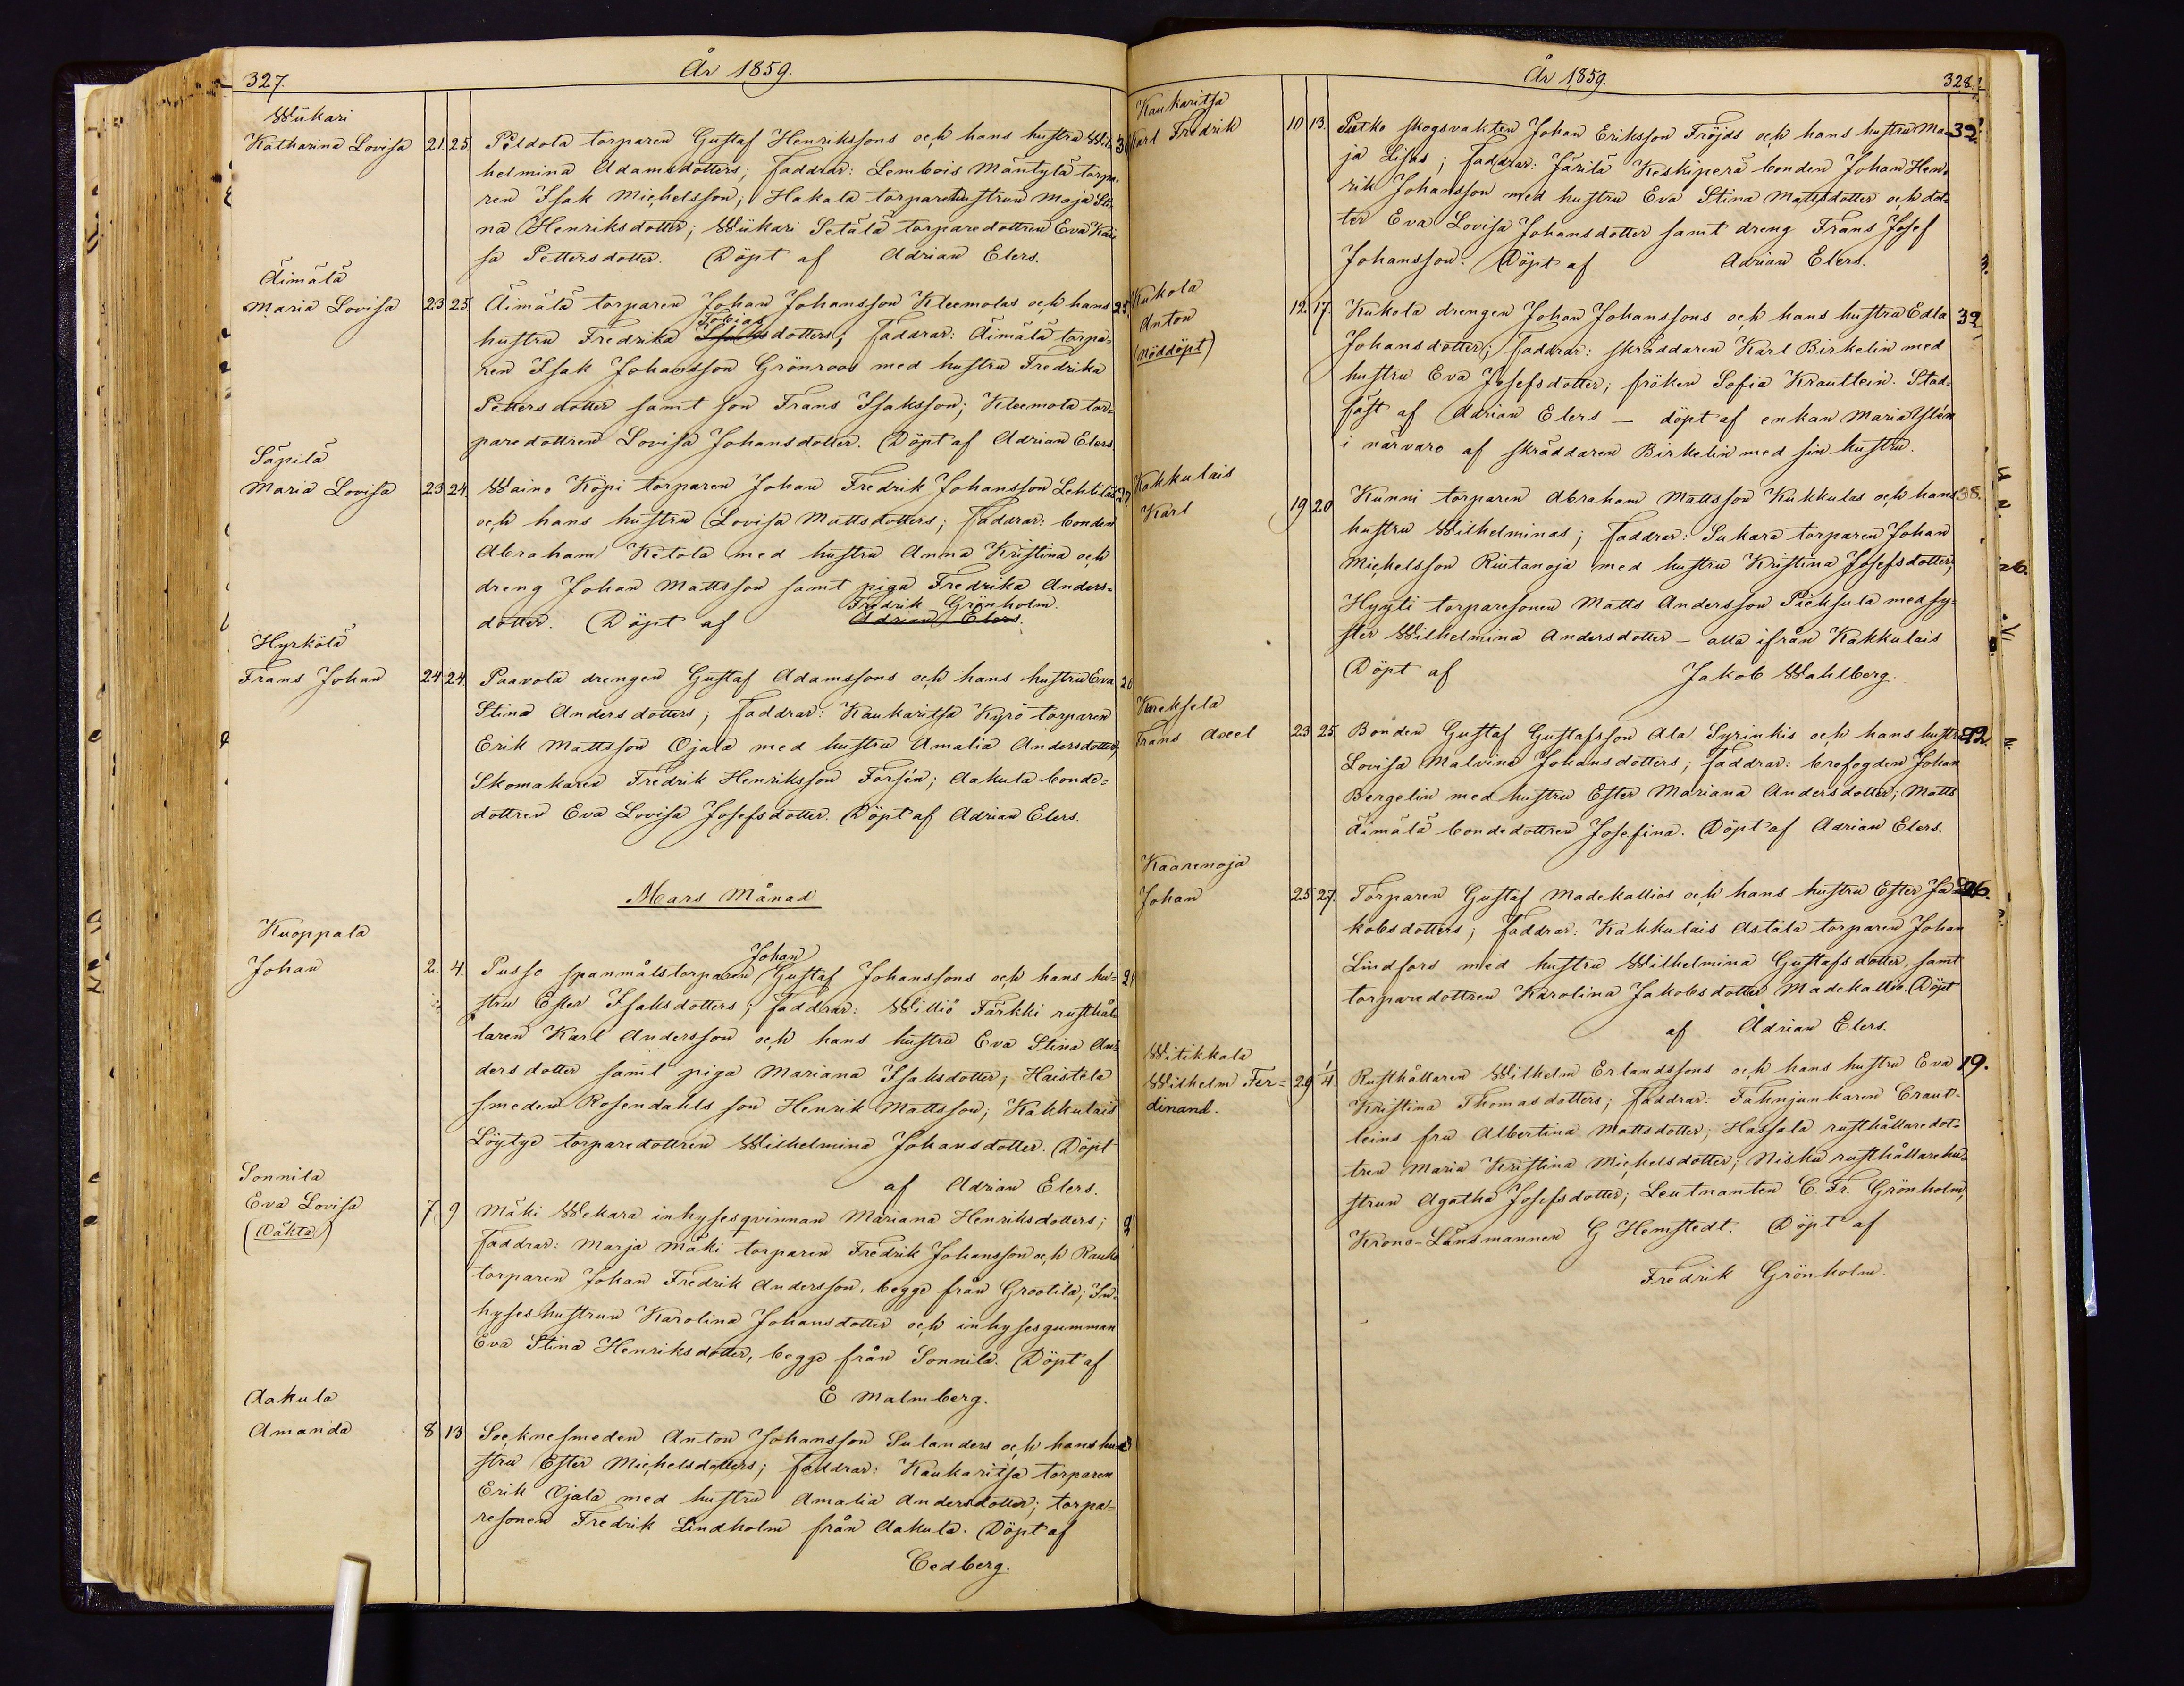 327.
År 1859.
Wiikari
Katharina Lovisa 21. 25. Peldola torparen Gustaf Henrikssons och hans hustru Wil-
helmina Adamsdotters; faddrar: Lembois Mäntylä torpa-
ren Isak Michelsson; Hakala torparehustrun Maja Sti-
na Henriksdotter; Wiikari Setälä torparedottren Eva Kai
sa Pettersdotter. Döpt af Adrian Elers.
Äimälä
Maria Lovisa 23 25. Äimälä torparen Johan Johansson Kleemolas och hans 25.
Tobias
hustru Fredrika Isaksdotters; faddrar: Äimälä torpa-
ren Isak Johansson Grönroos med hustru Fredrika
Pettersdotter samt son Frans Isaksson; Kleemola tor-
paredottren Lovisa Johansdotter. Döpt af Adrian Elers
Säpilä
Maria Lovisa 23 24. Waino Köpi torparen Johan Fredrik Johansson Lehtiläs
och hans hustru Lovisa Mattsdotters; faddrar: bonden
Abraham Ketola med hustru Anna Kristina och
dreng Johan Mattsson samt piga Fredrika Anders-
Fredrik Grönholm.
dotter. Döpt af Adrian Elers.
Hyrkölä
Frans Johan 24 24. Paavola drengen Gustaf Adamssons och hans hustru Eva
Stina Andersdotters; faddrar: Kaukaritsa Kyrö torparen
Erik Mattsson Ojala med hustru Amalia Andersdotter,
Skomakaren Fredrik Henriksson Forsén; Aakula bonde-
dottren Eva Lovisa Josefsdotter. Döpt af Adrian Elers.
Mars Månad
Kuoppala
Johan
Johan 2. 4. Pusso spanmålstorparen Gustaf Johanssons och hans hu-
stru Ester Isaksdotters; faddrar: Williö Färkki rusthål-
laren Karl Andersson och hans hustru Eva Stina An-
dersdotter samt piga Mariana Isaksdotter; Haistela
smeden Rosendahls son Henrik Mattsson; Kakkulais
Löytye torparedottren Wilhelmina Johansdotter. Döpt
af Adrian Elers.
Sonnila
Eva Lovisa 7. 9 Mäki Wekara inhysesqvinnan Mariana Henriksdotters;
(Oäkta) faddrar: Marja Mäki torparen Fredrik Johansson och Rauko
torparen Johan Fredrik Andersson, begge från Grootila; In-
hyseshustrun Karolina Johansdotter och inhysesgumman
Eva Stina Henriksdotter, begge från Sonnila. Döpt af
E Malmberg.
Aakula
Amanda 8 13 Socknesmeden Anton Johansson Sulanders och hans hu-
stru Ester Michelsdotters; faddrar: Kaukaritsa torparen
Erik Ojala med hustru Amalia Andersdotter; torpa-
resonen Fredrik Lindholm från Aakula. Döpt af
Cedberg.
År 1859.
328.
Kaukaritsa
Karl Fredrik 10 13. Putko skogsvakten Johan Eriksson Fröjds och hans hustru Ma- 39.
ja Lisas; faddrar: Järilä Keskiperä bonden Johan Hen-
rik Johansson med hustru Eva Stina Mattsdotter och dot-
ter Eva Lovisa Johansdotter samt dreng Frans Josef
Johansson. Döpt af Adrian Elers.
Kukola
Anton 12. 17. Kukola drengen Johan Johanssons och hans hustru Edla 39
(Nöddöpt) Johansdotter; faddrar: skräddaren Karl Birkelin med
hustru Eva Josefsdotter; fröken Sofia Krautlein. Stad-
fäst af Adrian Elers — döpt af enkan Maria Ylén
i närvaro af skräddaren Birkelin med sin hustru.
Kakkulais
Karl 19 20 Kunni torparen Abraham Mattsson Kukkulas och hans 38.
hustru Wilhelminas; faddrar: Sukara torparen Johan
Michelsson Riutanoja med hustru Kristina Josefsdotter;
Hyyti torparesonen Matts Andersson Pieksula med sy-
ster Wilhelmina Andersdotter — alla ifrån Kakkulais
Döpt af Jakob Wahlberg.
Kureksela
Frans Axel 23 25 Bonden Gustaf Gustafsson Ala Syrinkis och hans hustru 22.
Lovisa Malvina Johansdotters; faddrar: brofogden Johan
Bergelin med hustru Ester Mariana Andersdotter; Matts
Äimälä bondedottren Josefina. Döpt af Adrian Elers.
Kaarenoja
Johan 25 27. Torparen Gustaf Madekallios och hans hustru Ester Ja- 26.
kobsdotters; faddrar: Kakkulais Astala torparen Johan
Lindfors med hustru Wilhelmina Gustafsdotter, samt
torparedottren Karolina Jakobsdotter Madekallio. Döpt
af Adrian Elers.
Witikkala
Wilhelm Fer- 29 1/4 Rusthållaren Wilhelm Erlandssons och hans hustru Eva 19.
dinand. Kristina Thomasdotters; faddrar: Fahnjunkaren Craut-
leins fru Albertina Mattsdotter; Hassala rusthållaredot-
tren Maria Kristina Michelsdotter; Nisku rusthållarehu-
strun Agatha Josefsdotter; Leutnanten C. Fr. Grönholm,
Krono-Länsmannen G Hemstedt. Döpt af
Fredrik Grönholm.